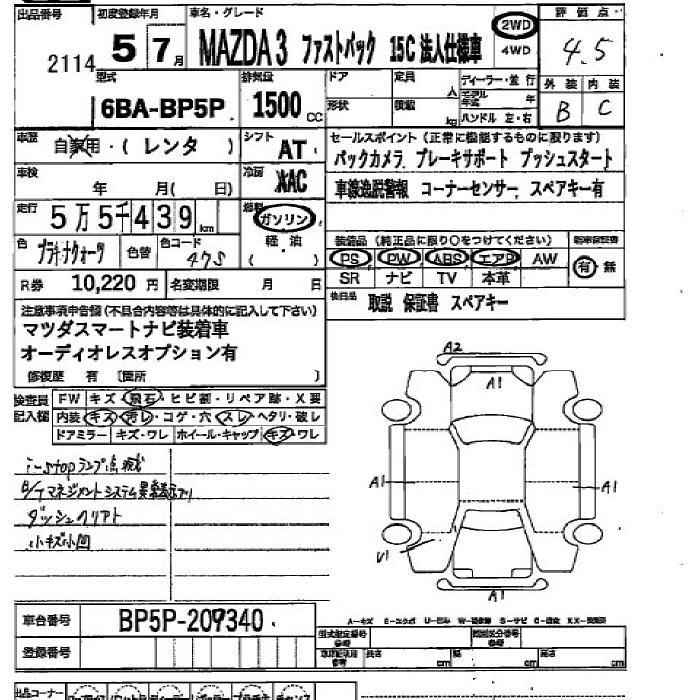 出品番号 2114
初度登録年月 5 7月
車名・グレード MAZDA3 ファストバック 15C 法人仕様車
2WD
4WD
評価点 4.5
外装 内装
B C
型式 6BA-BP5P
排気量 1500 CC
ドア
形状
定員 人
積載 kg
ディーラー・並行
年
ハンドル 左・右
車歴 自家用・(レンタ)
シフト AT
セールスポイント(正常に機能するものに限ります)
バックカメラ ブレーキサポート プッシュスタート
車線逸脱警報 コーナーセンサー スペアキー有
車検 年 月( 日)
冷房 AAC
走行 5万5千439 km
燃料 ガソリン
軽・油
( )
色 プラチナクォーツ
色替
色コード 47S
装備品(純正品に限り○をつけてください)
PS PW ABS エアB AW
SR ナビ TV 本革
有・無
R券 10,220円
名変期限 月 日
後日品 取説 保証書 スペアキー
注意事項申告欄(不具合内容等は具体的に記入して下さい)
マツダスマートナビ装着車
オーディオレスオプション有
修復歴 有 〔箇所 〕
検査員記入欄
FW キズ・飛石・ヒビ割・リペア跡・X要
内装・キズ・汚レ・コゲ・穴・スレ・ヘタリ・破レ
ドアミラー キズ・ワレ ホイール・キャップ キズ・ワレ
i-stopランプ点滅
B/Tマネジメントシステム異常表示アリ
ダッシュクリアト
小キズ小凹
A2
A1
A1
A1
U1
A1
車台番号 BP5P-209340
登録番号
A-キズ E-エクボ U-凹み
型式指定番号
類別区分番号
長さ cm 幅 cm 高さ cm
出品コーナー